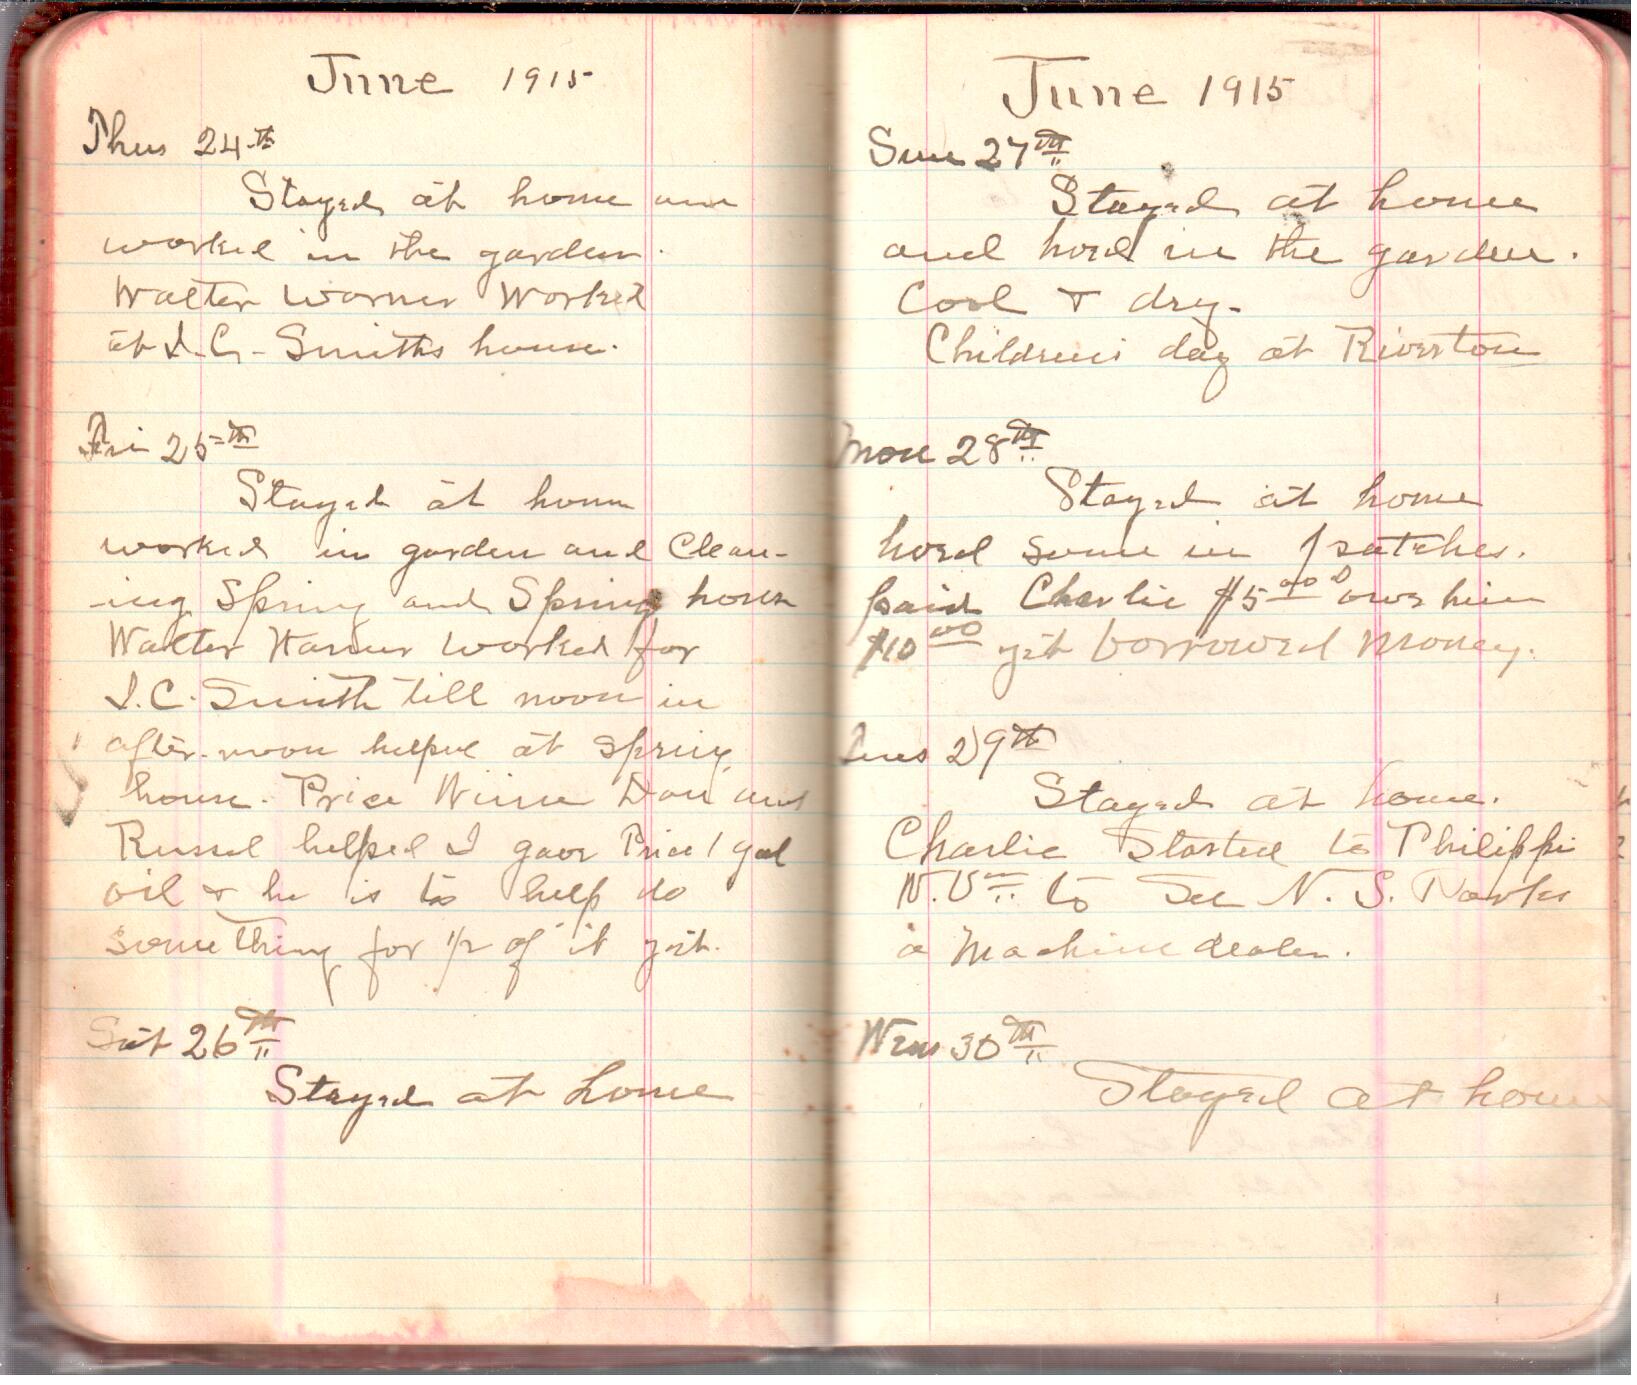 June 1915
Thus 24th
Stayed at home and
worked in the garden.
Walter Warner Worked
at I. C. Smiths house.
Fri 25th
Stayed at home
worked in garden and Clean-
-ing Spring and Spring house
Walter Warner worked for
I. C. Smith till noon in
after-noon helped at spring
house. Price Winie Dan and
Russel helped I gave Price 1 gal
oil & he is to help do
something for 1/2 of it yet.
Sat 26th
Stayed at home
June 1915
Sun 27th
Stayed at home
and hoed in the garden.
Cool & dry.
Childrens day at Riverton
Mon 28th
Stayed at home
hoed some in patches.
paid Charlie $5.00 owe him
$10.00 yet borrowed money.
Tues 29th
Stayed at home.
Charlie Started to Philippi
W. Va. to See N. S.
a Machine dealer.
Wens 30th
Stayed at home